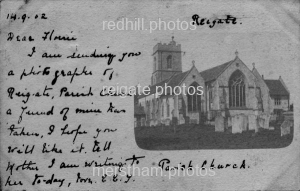 14.9.02
Reigate.
redhill photos
Dear Florrie
I am sending you
a photographs of
Reigate, Parish
a friend of mine has
reigate photos
taken, I hope you
will like it. Tell
Mother I am writing to
her to-day,
Parish Church.
merstham photos